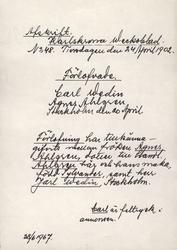 Afskrift.
Karlskrona Weckoblad.
No 348. Torsdagen den 24 April 1902.
Förlofvade.
Carl Wedin
Agnes Ahlgren.
Stockholm den 20 April
Förlofning har tillkänna-
gifvits mellan fröken Agnes
Ahlgren, dotter till
Ahlgren här och hans maka
född Sylvander, samt herr
Carl Wedin Stockholm.
Carl är feltryck i
annonsen.
20/6 1967.